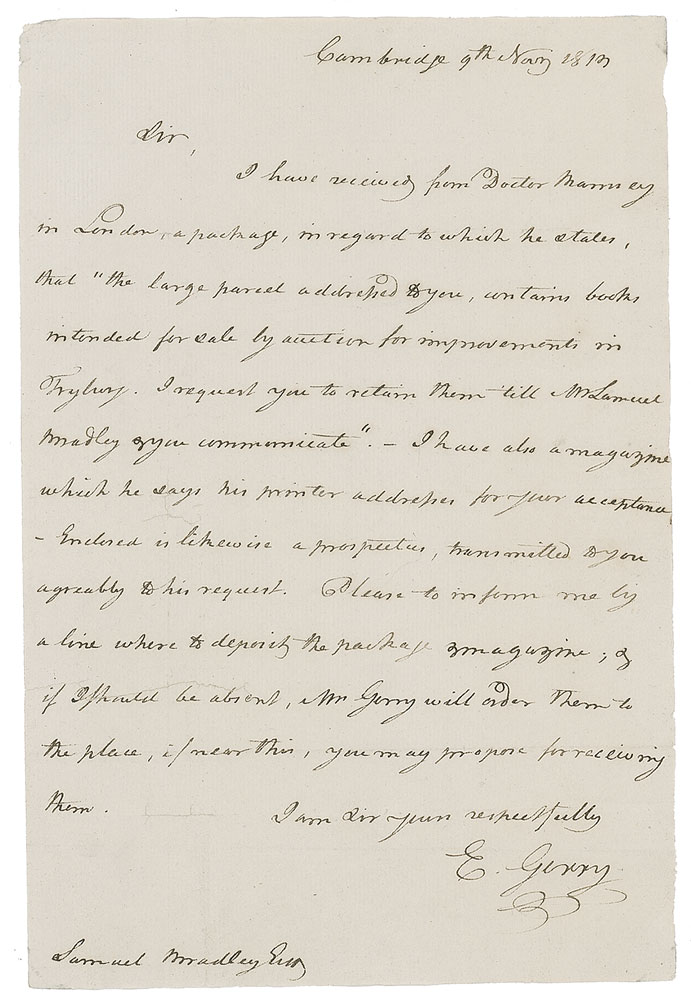 Cambridge 9th Novr 1812
Sir,
I have received from Doctor Ramsey
in London, a package, in regard to which he states,
that "the large parcel addressed to you, contains books
intended for sale by auction for improvements in
Fryburg. I request you to retain them till Mr Samuel
Bradley & you communicate". – I have also a magazine
which he says his printer addresses for your acceptance
– Enclosed is likewise a prospectus, transmitted to you
agreably to his request. Please to inform me by
a line where to deposit the package & magazine; &
if I should be absent, Mrs Gerry will order them to
the place, if near this, you may propose for receiving
them.
I am Sir yours respectfully
E. Gerry
Samuel Bradley Esq